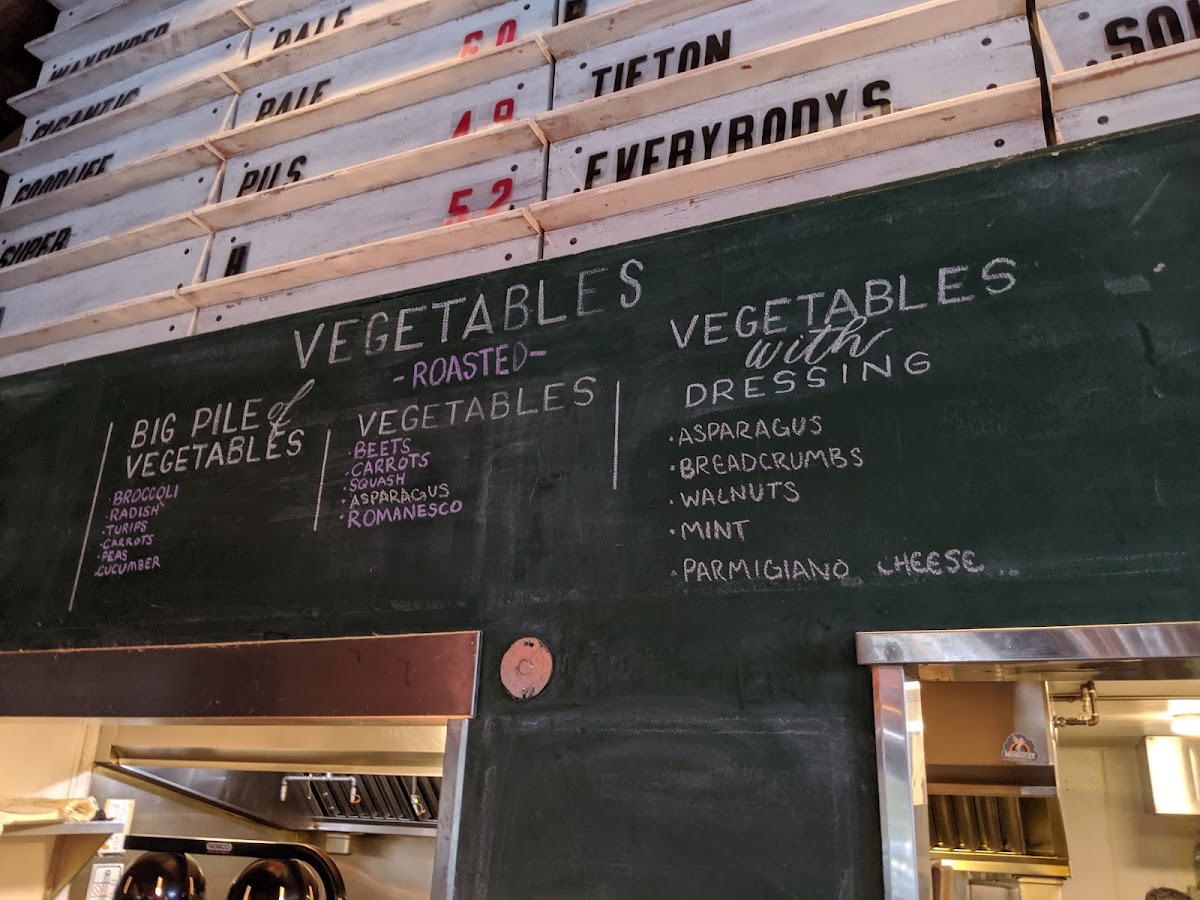 WAYFINDER
PALE
60
TIFTON
SOU
GIGANTIC
PALE
48
EVERYBODYS
GOODLIFE
PILS
52
SUPER
VEGETABLES
BIG PILE of
VEGETABLES
· BROCCOLI
· RADISH
· TURIPS
· CARROTS
· PEAS
· CUCUMBER
- ROASTED -
VEGETABLES
· BEETS
· CARROTS
· SQUASH
· ASPARAGUS
· ROMANESCO
VEGETABLES
with
DRESSING
· ASPARAGUS
· BREADCRUMBS
· WALNUTS
· MINT
· PARMIGIANO CHEESE
NEMCO